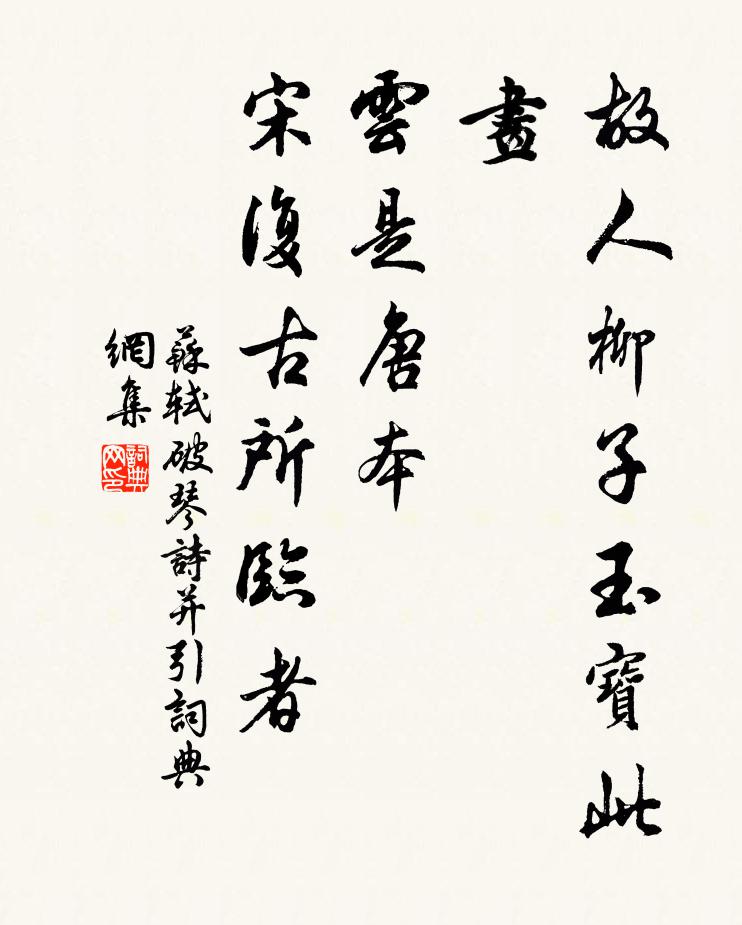 故人柳子玉寶此
畫
雲是唐本
宋復古所臨者
蘇軾破琴詩并引詞典
網集
詞典
网印